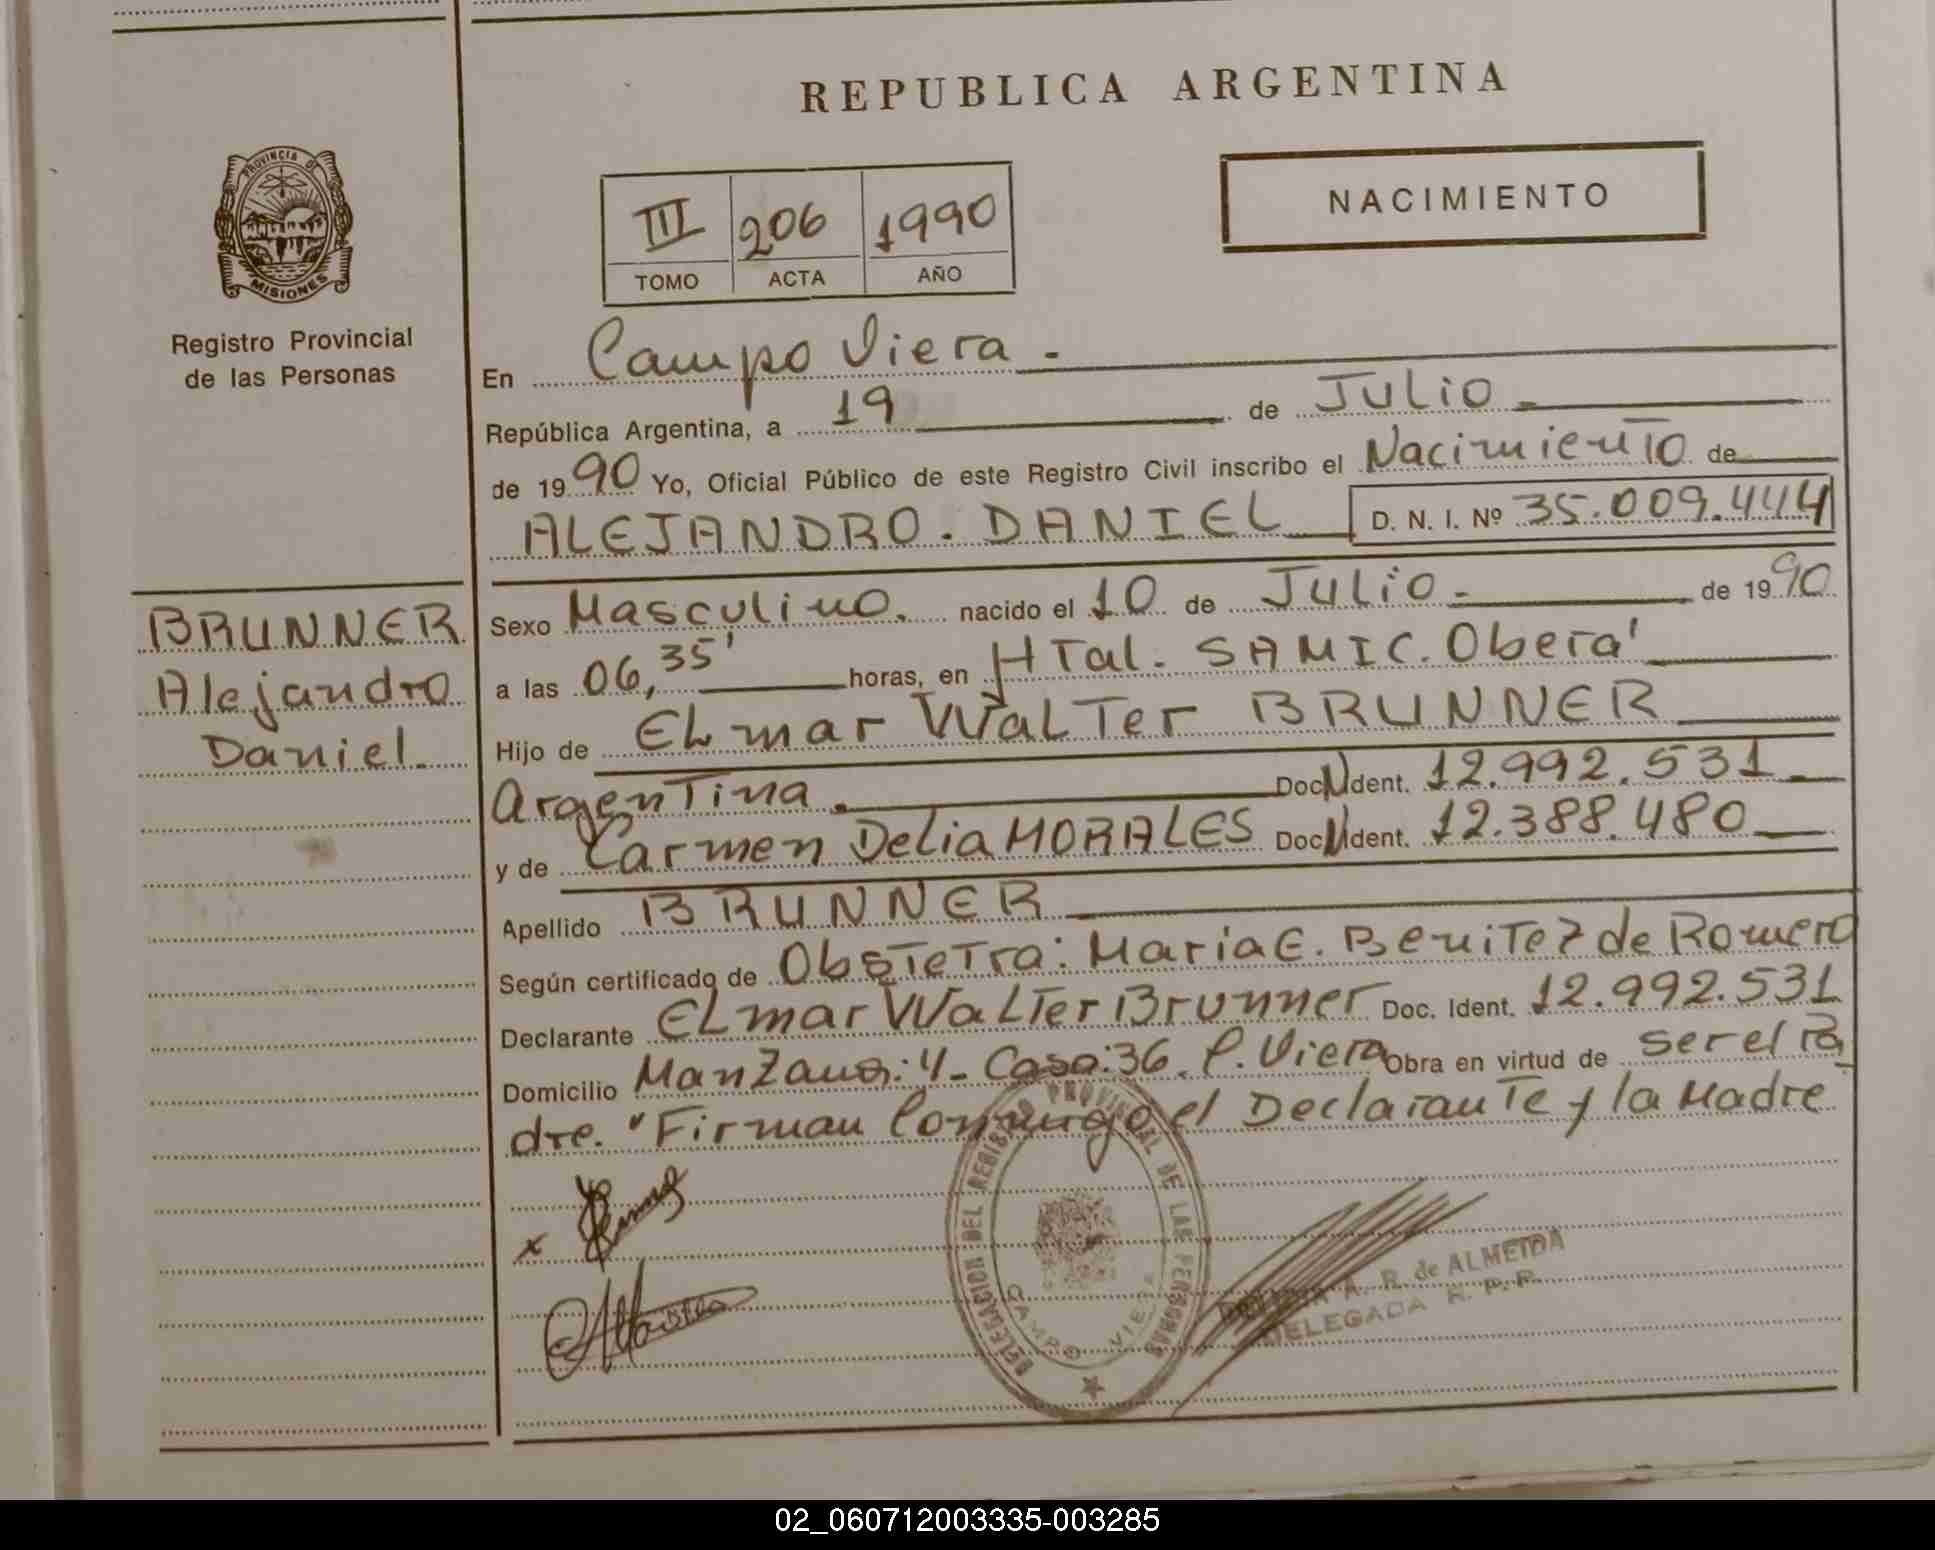 REPUBLICA ARGENTINA
PROVINCIA DE
MISIONES
Registro Provincial
de las Personas
NACIMIENTO
III 206 1990
TOMO ACTA AÑO
En Campo Viera.-
República Argentina, a 19 de JULIO.-
de 1990 Yo, Oficial Público de este Registro Civil inscribo el Nacimiento de
ALEJANDRO. DANIEL D. N. I. Nº 35.009.444
BRUNNER
Alejandro
Daniel.
Sexo Masculino. nacido el 10 de JULIO.- de 1990
a las 06,35' horas, en HTal. SAMIC. Oberá
Hijo de ELmar WaLTer BRUNNER
ArgenTina. Doc N Ident. 12.992.531-
y de Carmen DeLia MORALES Doc N Ident. 12.388.480
Apellido BRUNNER
Según certificado de ObsTeTra: Maria E. BeniTez de Romero
Declarante ELmar WaLTer Brunner Doc. Ident. 12.992.531
Domicilio ManZana: 4- Casa: 36. C. Viera Obra en virtud de ser el Pa
dre. "Firman Conmigo el DeclaranTe y la Madre
x
DELEGACION DEL REGISTRO PROVINCIAL DE LAS PERSONAS
CAMPO VIERA
A. R. de ALMEIDA
DELEGADA R. P. P.
02_060712003335-003285